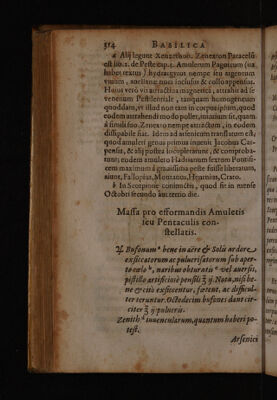 314 BASILICA
a Alij legunt Xenzethon. Zenexton Paracelsi
est lib. 2. de Peste cap. 2. Amuletum Pagoicum (ut
habet textus) hydrargyros nempe seu argentum
vivum, avellanæ nuci inclusus & collo appensus.
Huius verò vis attractiva magnetica; attrahit ad se
venenum Pestilentiale, tanquam homogeneum
quoddam, ut illud non tam in corpus ipsum, quod
eodem attrahendi modo pollet, insinuari sit, quam
à simili suo Zenexto nempe attractum, in eodem
dissipabile fiat. Idem ad arsenicum translatum est;
quod amuleti genus primus invenit Jacobus Car-
pensis, & alij postea locupletarunt, & comproba-
runt; eodem amuleto Hadrianum sextum Pontifi-
cem maximum à gravissima peste fuisse liberatum,
aiunt, Fallopius, Montanus, Hermim, Crato.
b In Scorpione coniunctis, quod fit in mense
Octobri secundo aut tertio die.
Massa pro efformandis Amuletis
seu Pentaculis con-
stellatis.
Bufonum a bene in aëre & Sole ardore
exsiccatorum ac pulverisatorum sub aper-
to cœlo b, naribus obturatis c vel aversis,
pistillo artificiosè pensili ʒ ij. Nota, nisi be-
ne & citò exsiccentur, fœtent, ac difficul-
ter teruntur. Octodecim bufones dant cir-
citer ʒ ij pulveris.
Zenith d iuvencularum, quantum haberi po-
test.
Arsenici